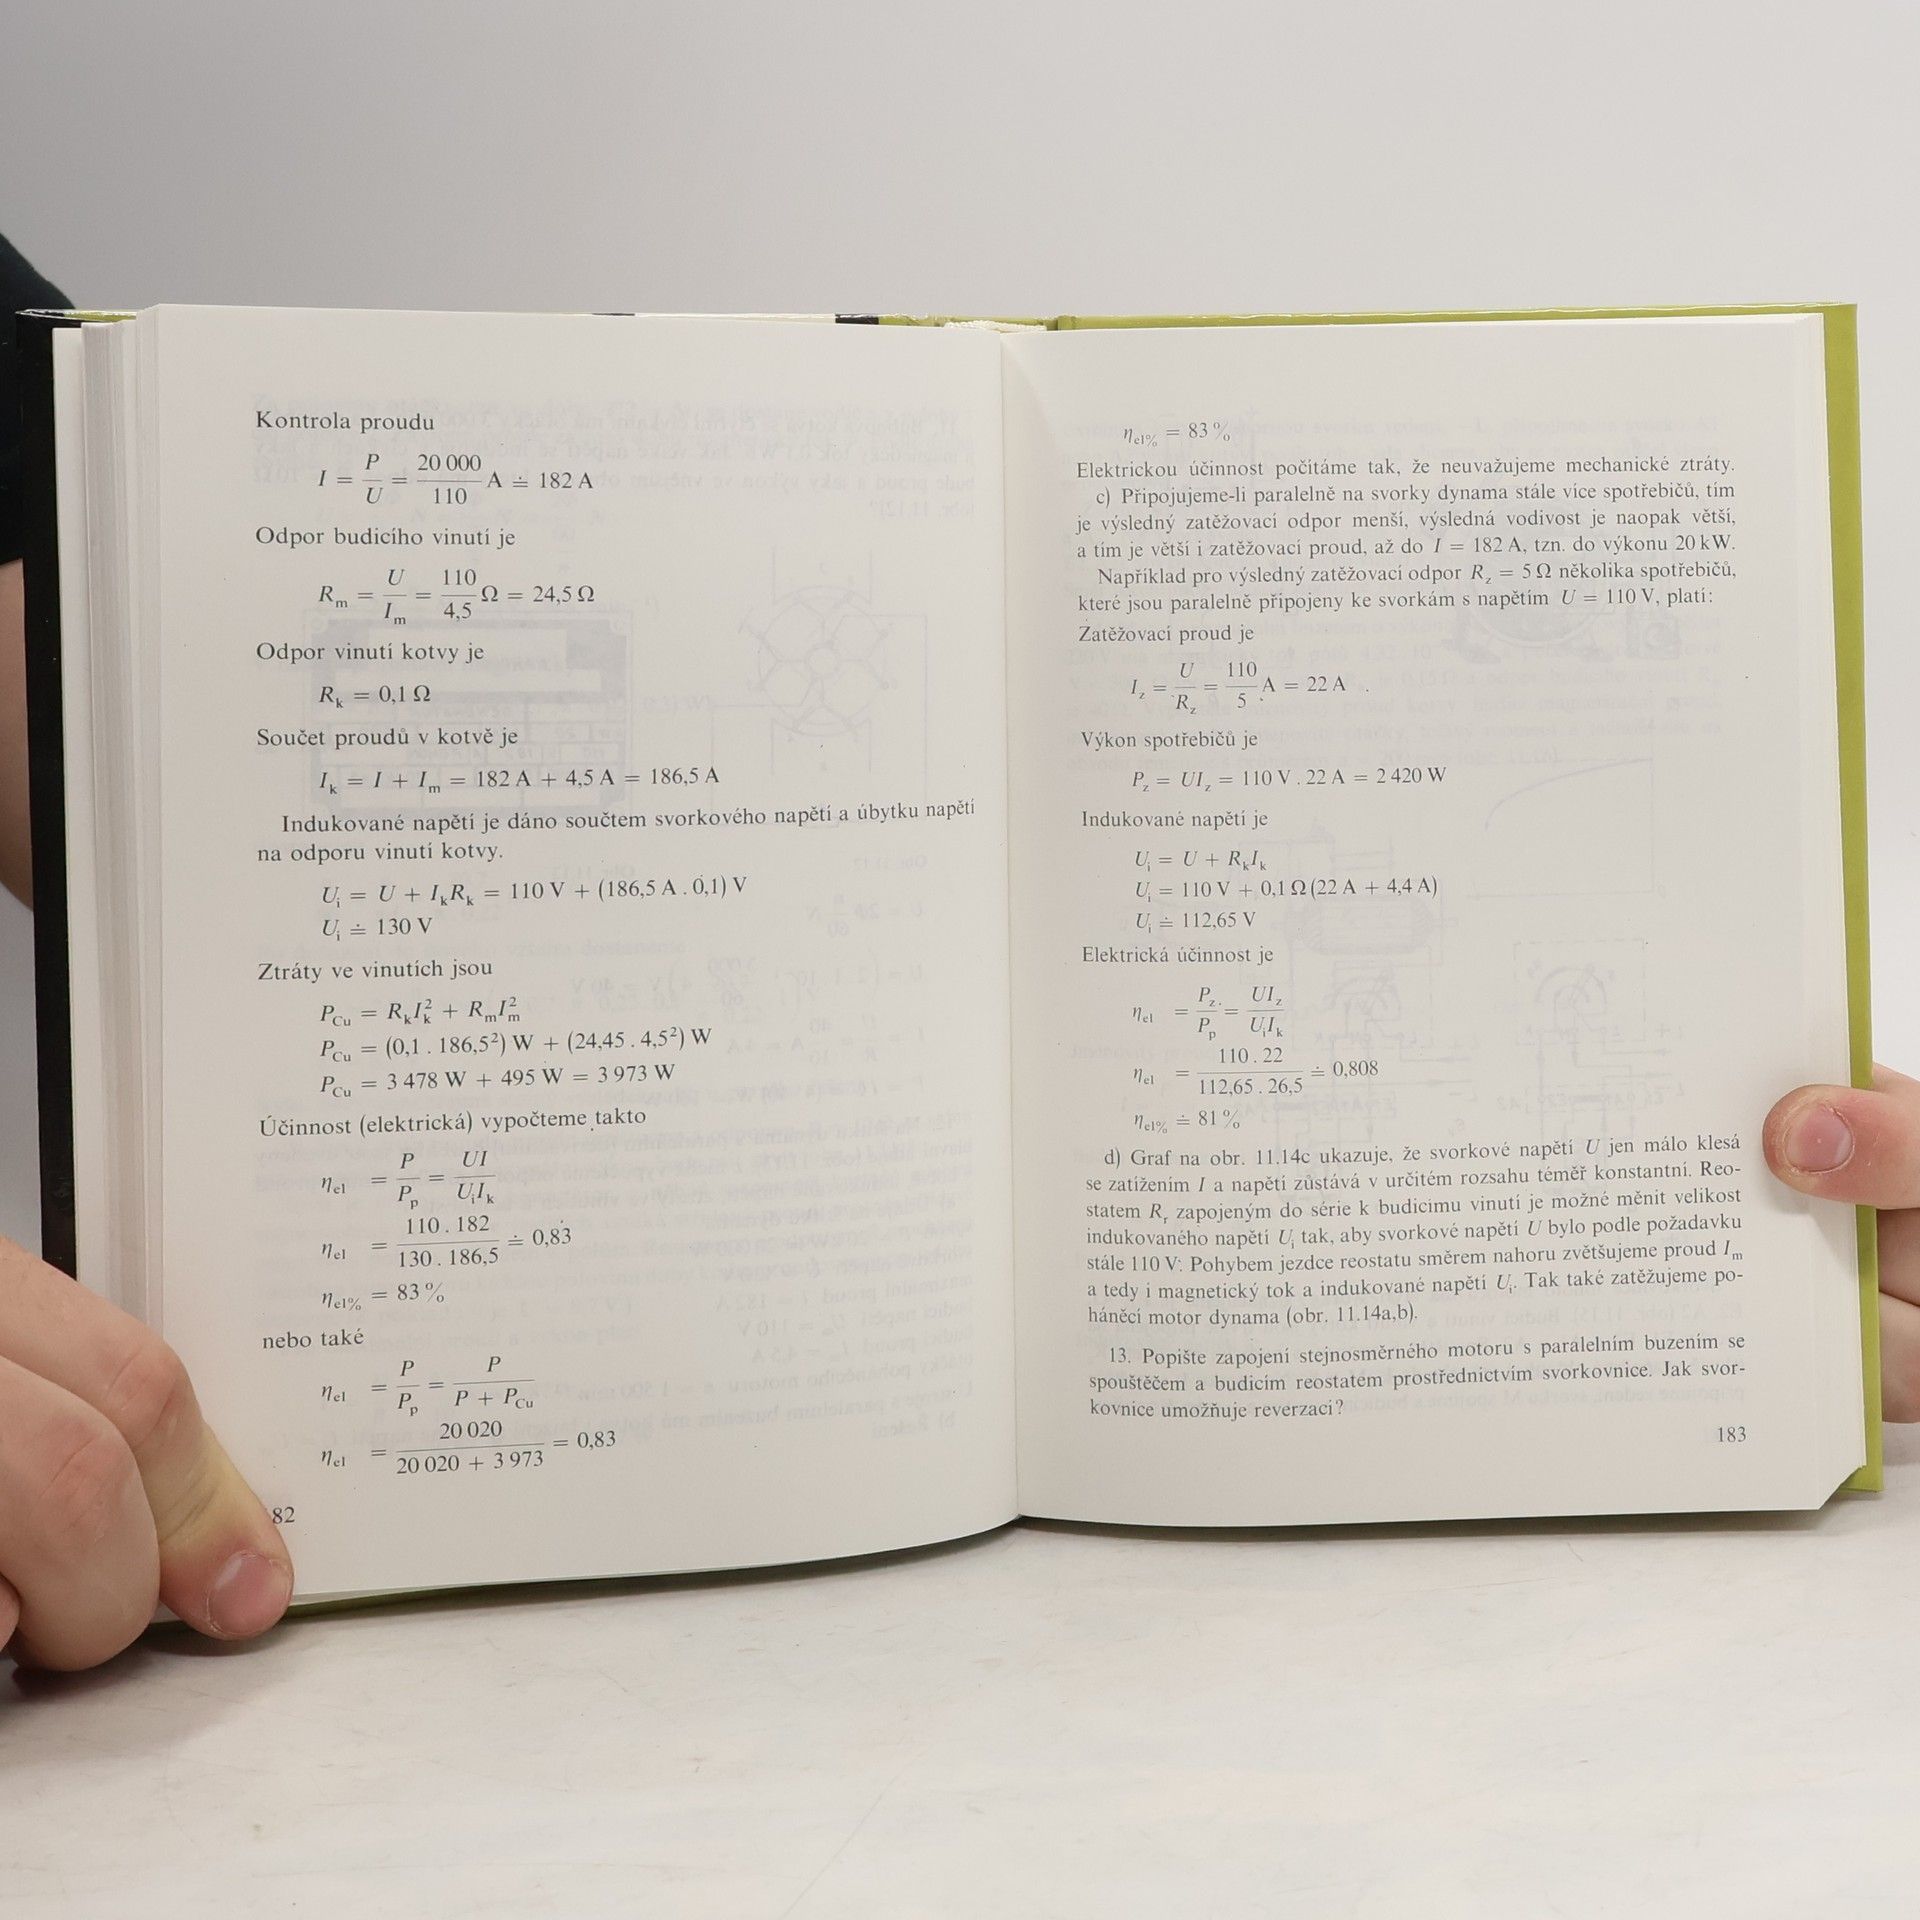 Kontrola proudu
I = P/U = 20 000/110 A ≐ 182 A
Odpor budicího vinutí je
Rm = U/Im = 110/4,5 Ω = 24,5 Ω
Odpor vinutí kotvy je
Rk = 0,1 Ω
Součet proudů v kotvě je
Ik = I + Im = 182 A + 4,5 A = 186,5 A
Indukované napětí je dáno součtem svorkového napětí a úbytku napětí
na odporu vinutí kotvy.
Ui = U + IkRk = 110 V + (186,5 A . 0,1) V
Ui ≐ 130 V
Ztráty ve vinutích jsou
PCu = RkIk² + RmIm²
PCu = (0,1 . 186,5²) W + (24,45 . 4,5²) W
PCu = 3 478 W + 495 W = 3 973 W
Účinnost (elektrická) vypočteme takto
ηel = P/Pp = UI/UiIk
ηel = 110 . 182/130 . 186,5 ≐ 0,83
ηel% = 83 %
nebo také
ηel = P/Pp = P/P + PCu
ηel = 20 020/20 020 + 3 973 = 0,83
82
ηel% = 83 %
Elektrickou účinnost počítáme tak, že neuvažujeme mechanické ztráty.
c) Připojujeme-li paralelně na svorky dynama stále více spotřebičů, tím
je výsledný zatěžovací odpor menší, výsledná vodivost je naopak větší,
a tím je větší i zatěžovací proud, až do I = 182 A, tzn. do výkonu 20 kW.
Například pro výsledný zatěžovací odpor Rz = 5 Ω několika spotřebičů,
které jsou paralelně připojeny ke svorkám s napětím U = 110 V, platí:
Zatěžovací proud je
Iz = U/Rz = 110/5 A = 22 A .
Výkon spotřebičů je
Pz = UIz = 110 V . 22 A = 2 420 W
Indukované napětí je
Ui = U + RkIk
Ui = 110 V + 0,1 Ω (22 A + 4,4 A)
Ui ≐ 112,65 V
Elektrická účinnost je
ηel = Pz/Pp = UIz/UiIk
ηel = 110 . 22/112,65 . 26,5 ≐ 0,808
ηel% ≐ 81 %
d) Graf na obr. 11.14c ukazuje, že svorkové napětí U jen málo klesá
se zatížením I a napětí zůstává v určitém rozsahu téměř konstantní. Reo-
statem Rr zapojeným do série k budicímu vinutí je možné měnit velikost
indukovaného napětí Ui tak, aby svorkové napětí U bylo podle požadavku
stále 110 V: Pohybem jezdce reostatu směrem nahoru zvětšujeme proud Im
a tedy i magnetický tok a indukované napětí Ui. Tak také zatěžujeme po-
háněcí motor dynama (obr. 11.14a,b).
13. Popište zapojení stejnosměrného motoru s paralelním buzením se
spouštěčem a budicím reostatem prostřednictvím svorkovnice. Jak svor-
kovnice umožňuje reverzaci?
183